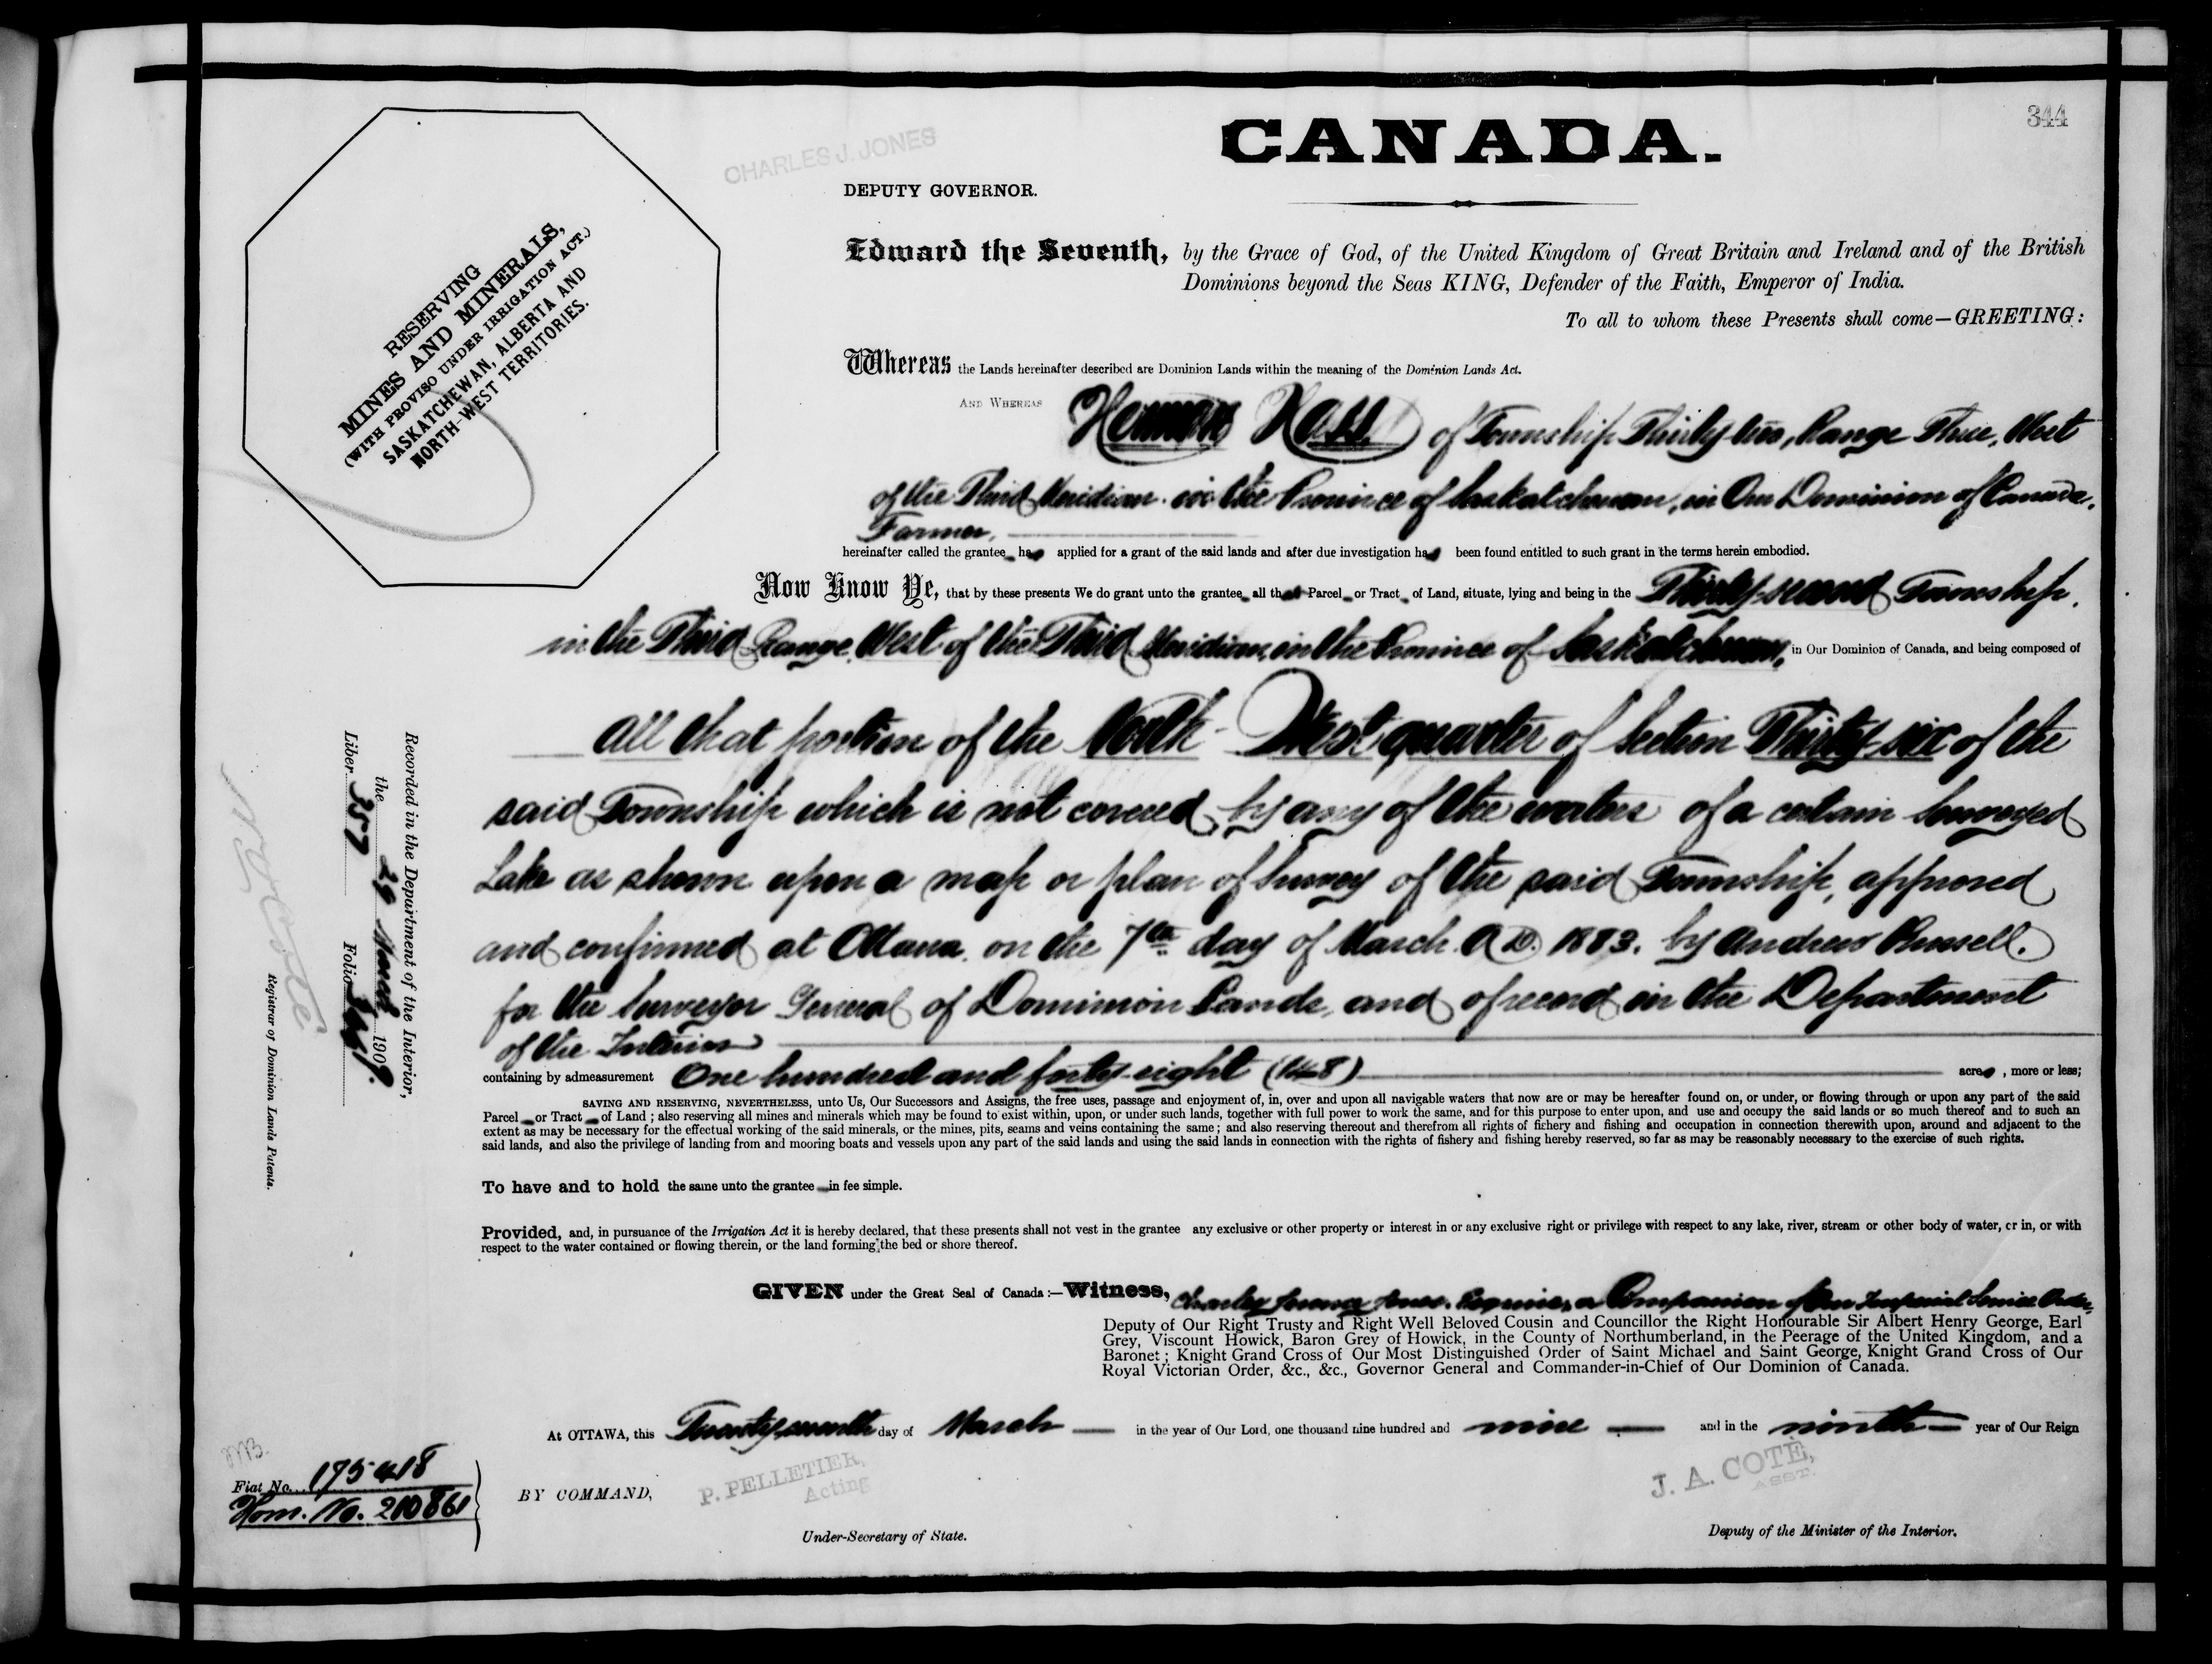 344
CHARLES J. JONES
CANADA.
DEPUTY GOVERNOR.
Edward the Seventh, by the Grace of God, of the United Kingdom of Great Britain and Ireland and of the British
Dominions beyond the Seas KING, Defender of the Faith, Emperor of India.
To all to whom these Presents shall come—GREETING:
RESERVING
MINES AND MINERALS,
(WITH PROVISO UNDER IRRIGATION ACT.)
SASKATCHEWAN, ALBERTA AND
NORTH-WEST TERRITORIES.
Whereas the Lands hereinafter described are Dominion Lands within the meaning of the Dominion Lands Act.
AND WHEREAS Herman Hass of Township Thirty-two, Range Three, West
of the Third Meridian in the Province of Saskatchewan, in Our Dominion of Canada,
Farmer,
hereinafter called the grantee has applied for a grant of the said lands and after due investigation has been found entitled to such grant in the terms herein embodied.
Now Know Ye, that by these presents We do grant unto the grantee all that Parcel or Tract of Land, situate, lying and being in the Thirty-second Township,
in the Third Range, West of the Third Meridian, in the Province of Saskatchewan, in Our Dominion of Canada, and being composed of
All that portion of the North-West quarter of Section Thirty-six of the
said Township which is not covered by any of the waters of a certain Surveyed
Lake as shown upon a map or plan of Survey of the said Township, approved
and confirmed at Ottawa, on the 7th day of March A.D. 1883, by Andrew Russell,
for the Surveyor General of Dominion Lands, and of record in the Department
of the Interior
containing by admeasurement One hundred and forty-eight (148) acres, more or less;
SAVING AND RESERVING, NEVERTHELESS, unto Us, Our Successors and Assigns, the free uses, passage and enjoyment of, in, over and upon all navigable waters that now are or may be hereafter found on, or under, or flowing through or upon any part of the said
Parcel or Tract of Land; also reserving all mines and minerals which may be found to exist within, upon, or under such lands, together with full power to work the same, and for this purpose to enter upon, and use and occupy the said lands or so much thereof and to such an
extent as may be necessary for the effectual working of the said minerals, or the mines, pits, seams and veins containing the same; and also reserving thereout and therefrom all rights of fishery and fishing and occupation in connection therewith upon, around and adjacent to the
said lands, and also the privilege of landing from and mooring boats and vessels upon any part of the said lands and using the said lands in connection with the rights of fishery and fishing hereby reserved, so far as may be reasonably necessary to the exercise of such rights.
To have and to hold the same unto the grantee in fee simple.
Provided, and, in pursuance of the Irrigation Act it is hereby declared, that these presents shall not vest in the grantee any exclusive or other property or interest in or any exclusive right or privilege with respect to any lake, river, stream or other body of water, or in, or with
respect to the water contained or flowing therein, or the land forming the bed or shore thereof.
GIVEN under the Great Seal of Canada:—Witness, Charles Jones, Esquire, a Companion of Our Imperial Service Order,
Deputy of Our Right Trusty and Right Well Beloved Cousin and Councillor the Right Honourable Sir Albert Henry George, Earl
Grey, Viscount Howick, Baron Grey of Howick, in the County of Northumberland, in the Peerage of the United Kingdom, and a
Baronet; Knight Grand Cross of Our Most Distinguished Order of Saint Michael and Saint George, Knight Grand Cross of Our
Royal Victorian Order, &c., &c., Governor General and Commander-in-Chief of Our Dominion of Canada.
At OTTAWA, this Twenty-seventh day of March in the year of Our Lord, one thousand nine hundred and nine and in the ninth year of Our Reign
BY COMMAND,
P. PELLETIER,
Acting
Under-Secretary of State.
J. A. COTÉ,
ASST.
Deputy of the Minister of the Interior.
Fiat No. 195418
Hom. No. 210861
Recorded in the Department of the Interior,
the 29 March 1909.
Liber 357 Folio
N.O. Coté
Registrar of Dominion Lands Patents.